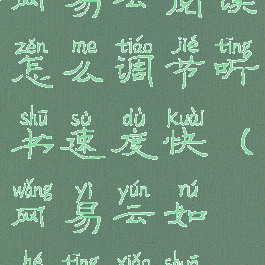 zěn me tiáo jié tīng
怎么调节听
shū sù dù kuài
书速度快（
wǎng yì yún rú
网易云如
hé tīng xiǎo shuō